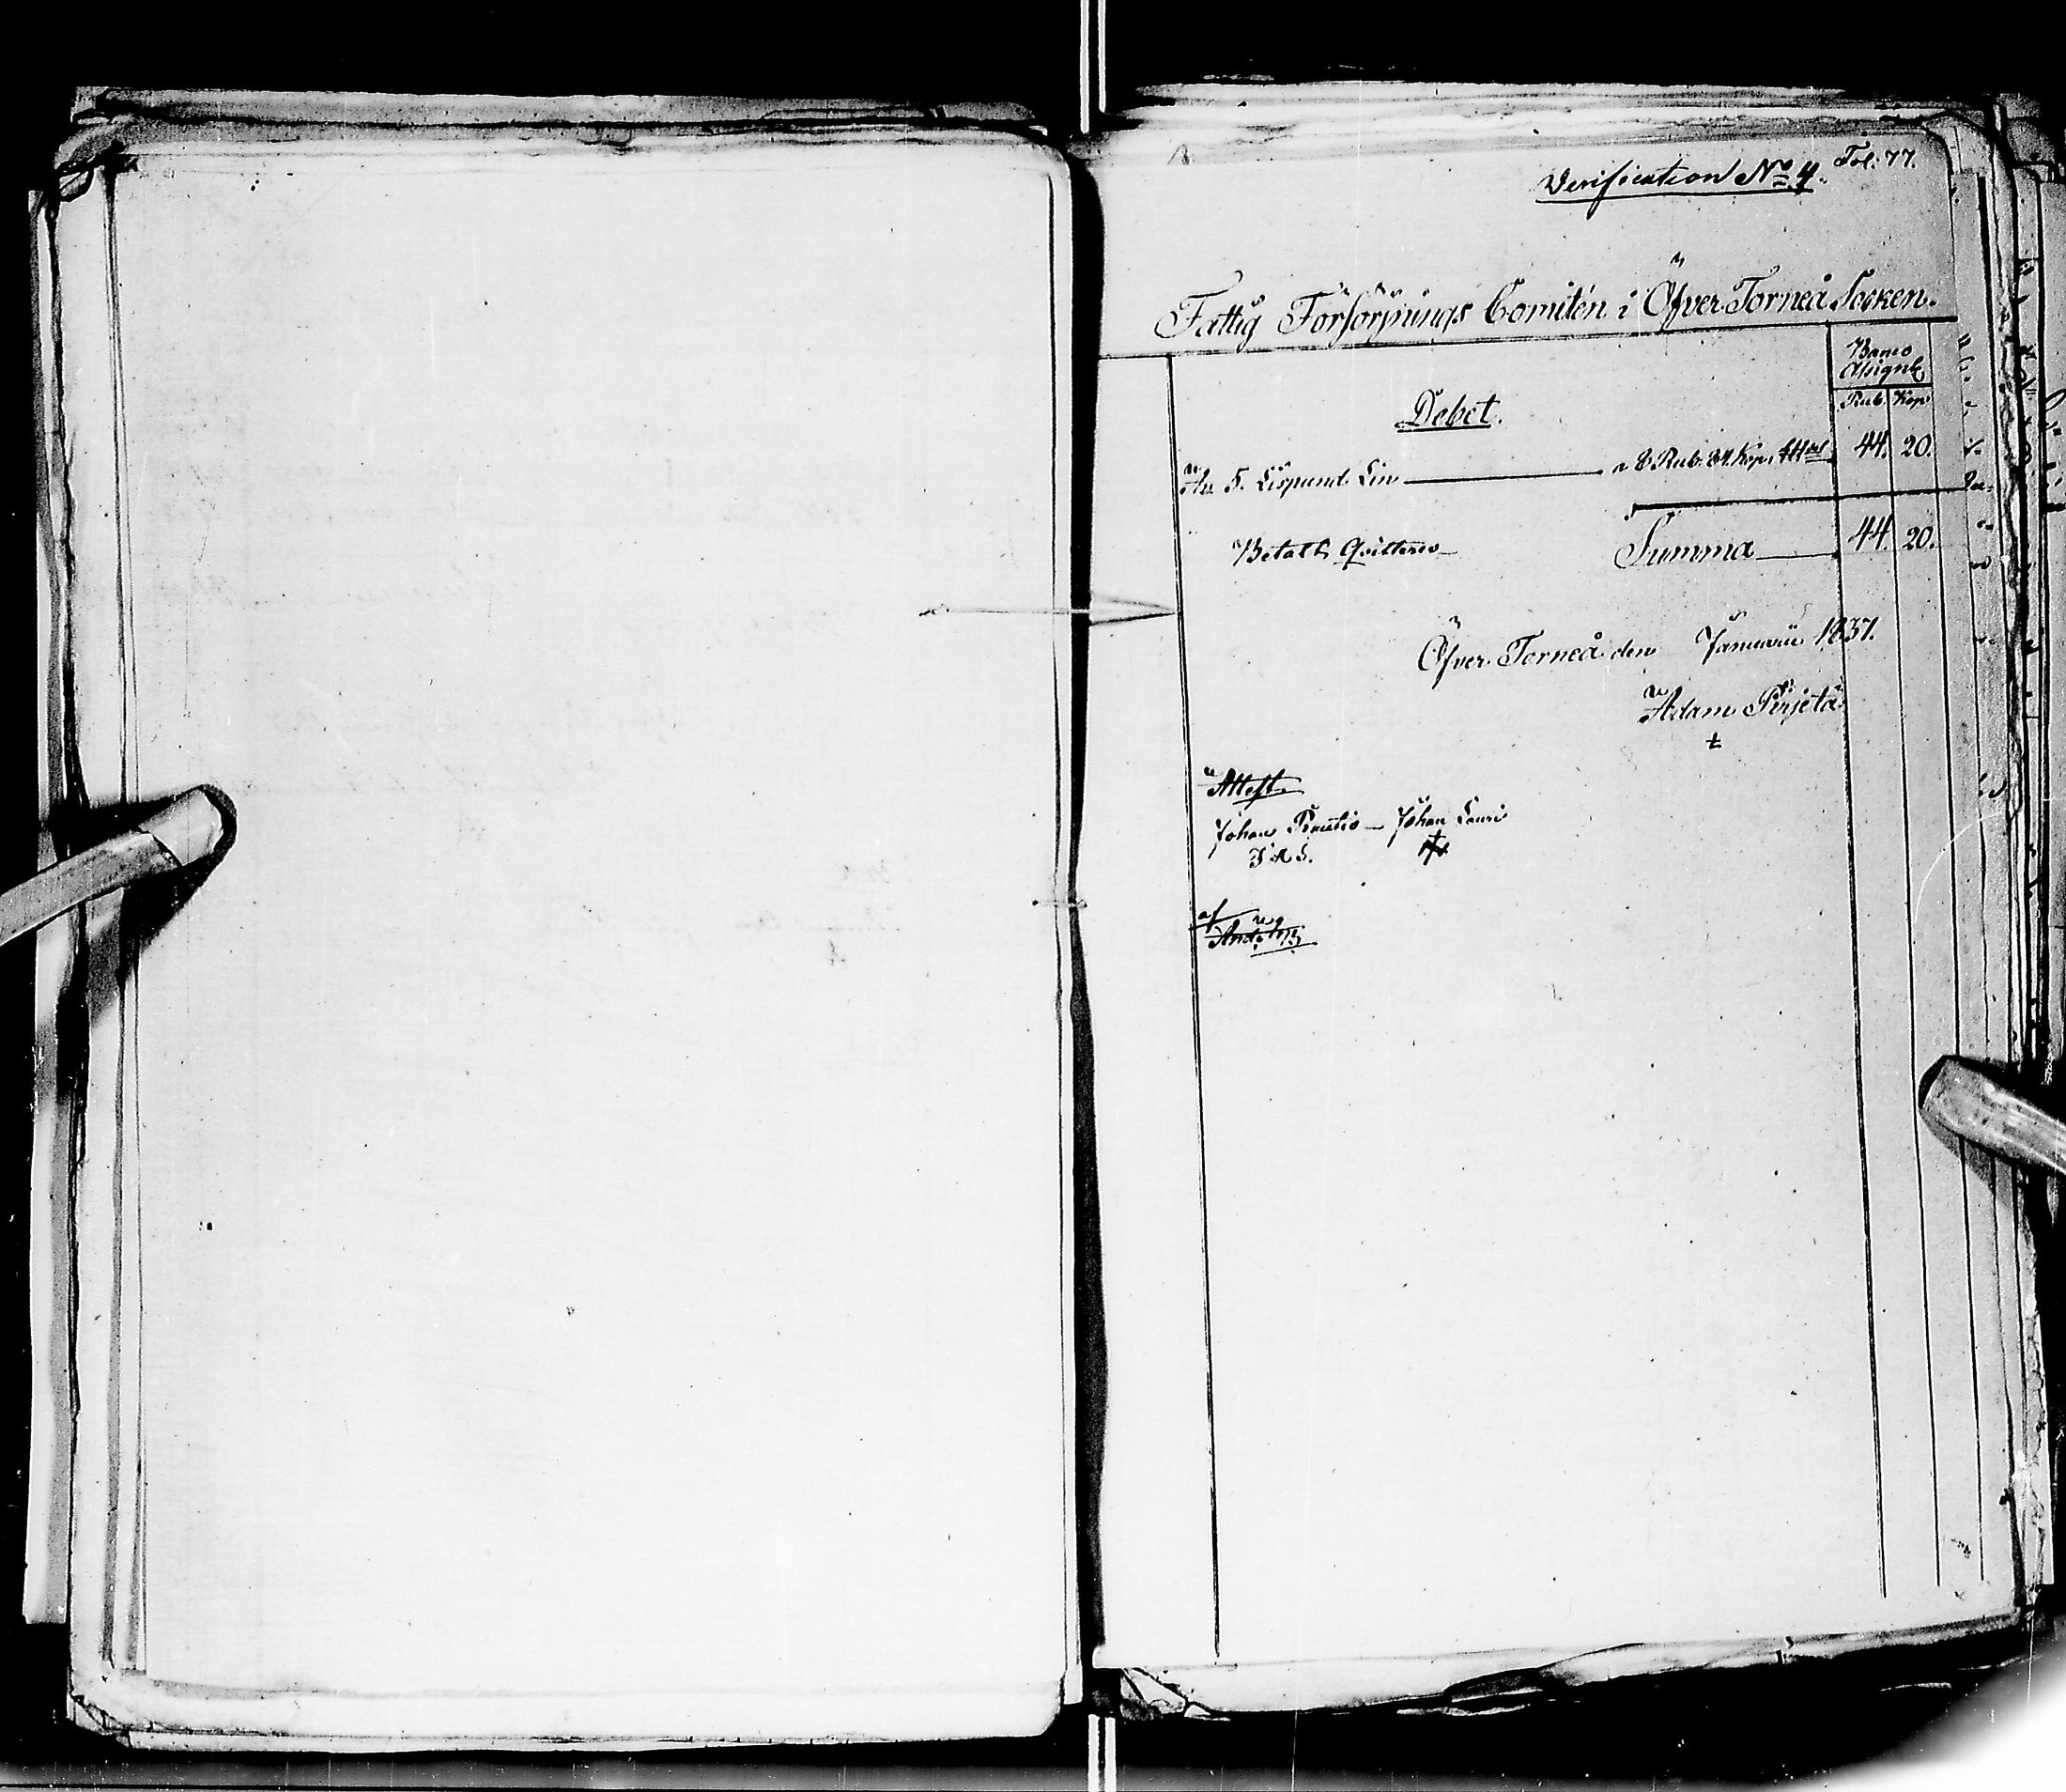 Fol: 77.
Verification No 4.
Fattig Försörjnings Comitén i Öfver Torneå Socken.
Banco Assignt
Debet.
Rub. Kop
An 5. Lispund Lin a 8 Rub. 84. Kop. 44. 20.
Betalt, Qvitteras Summa 44. 20.
Öfver Torneå den Januarii 1837.
Adam
Attest.
Johan Johan Lauri